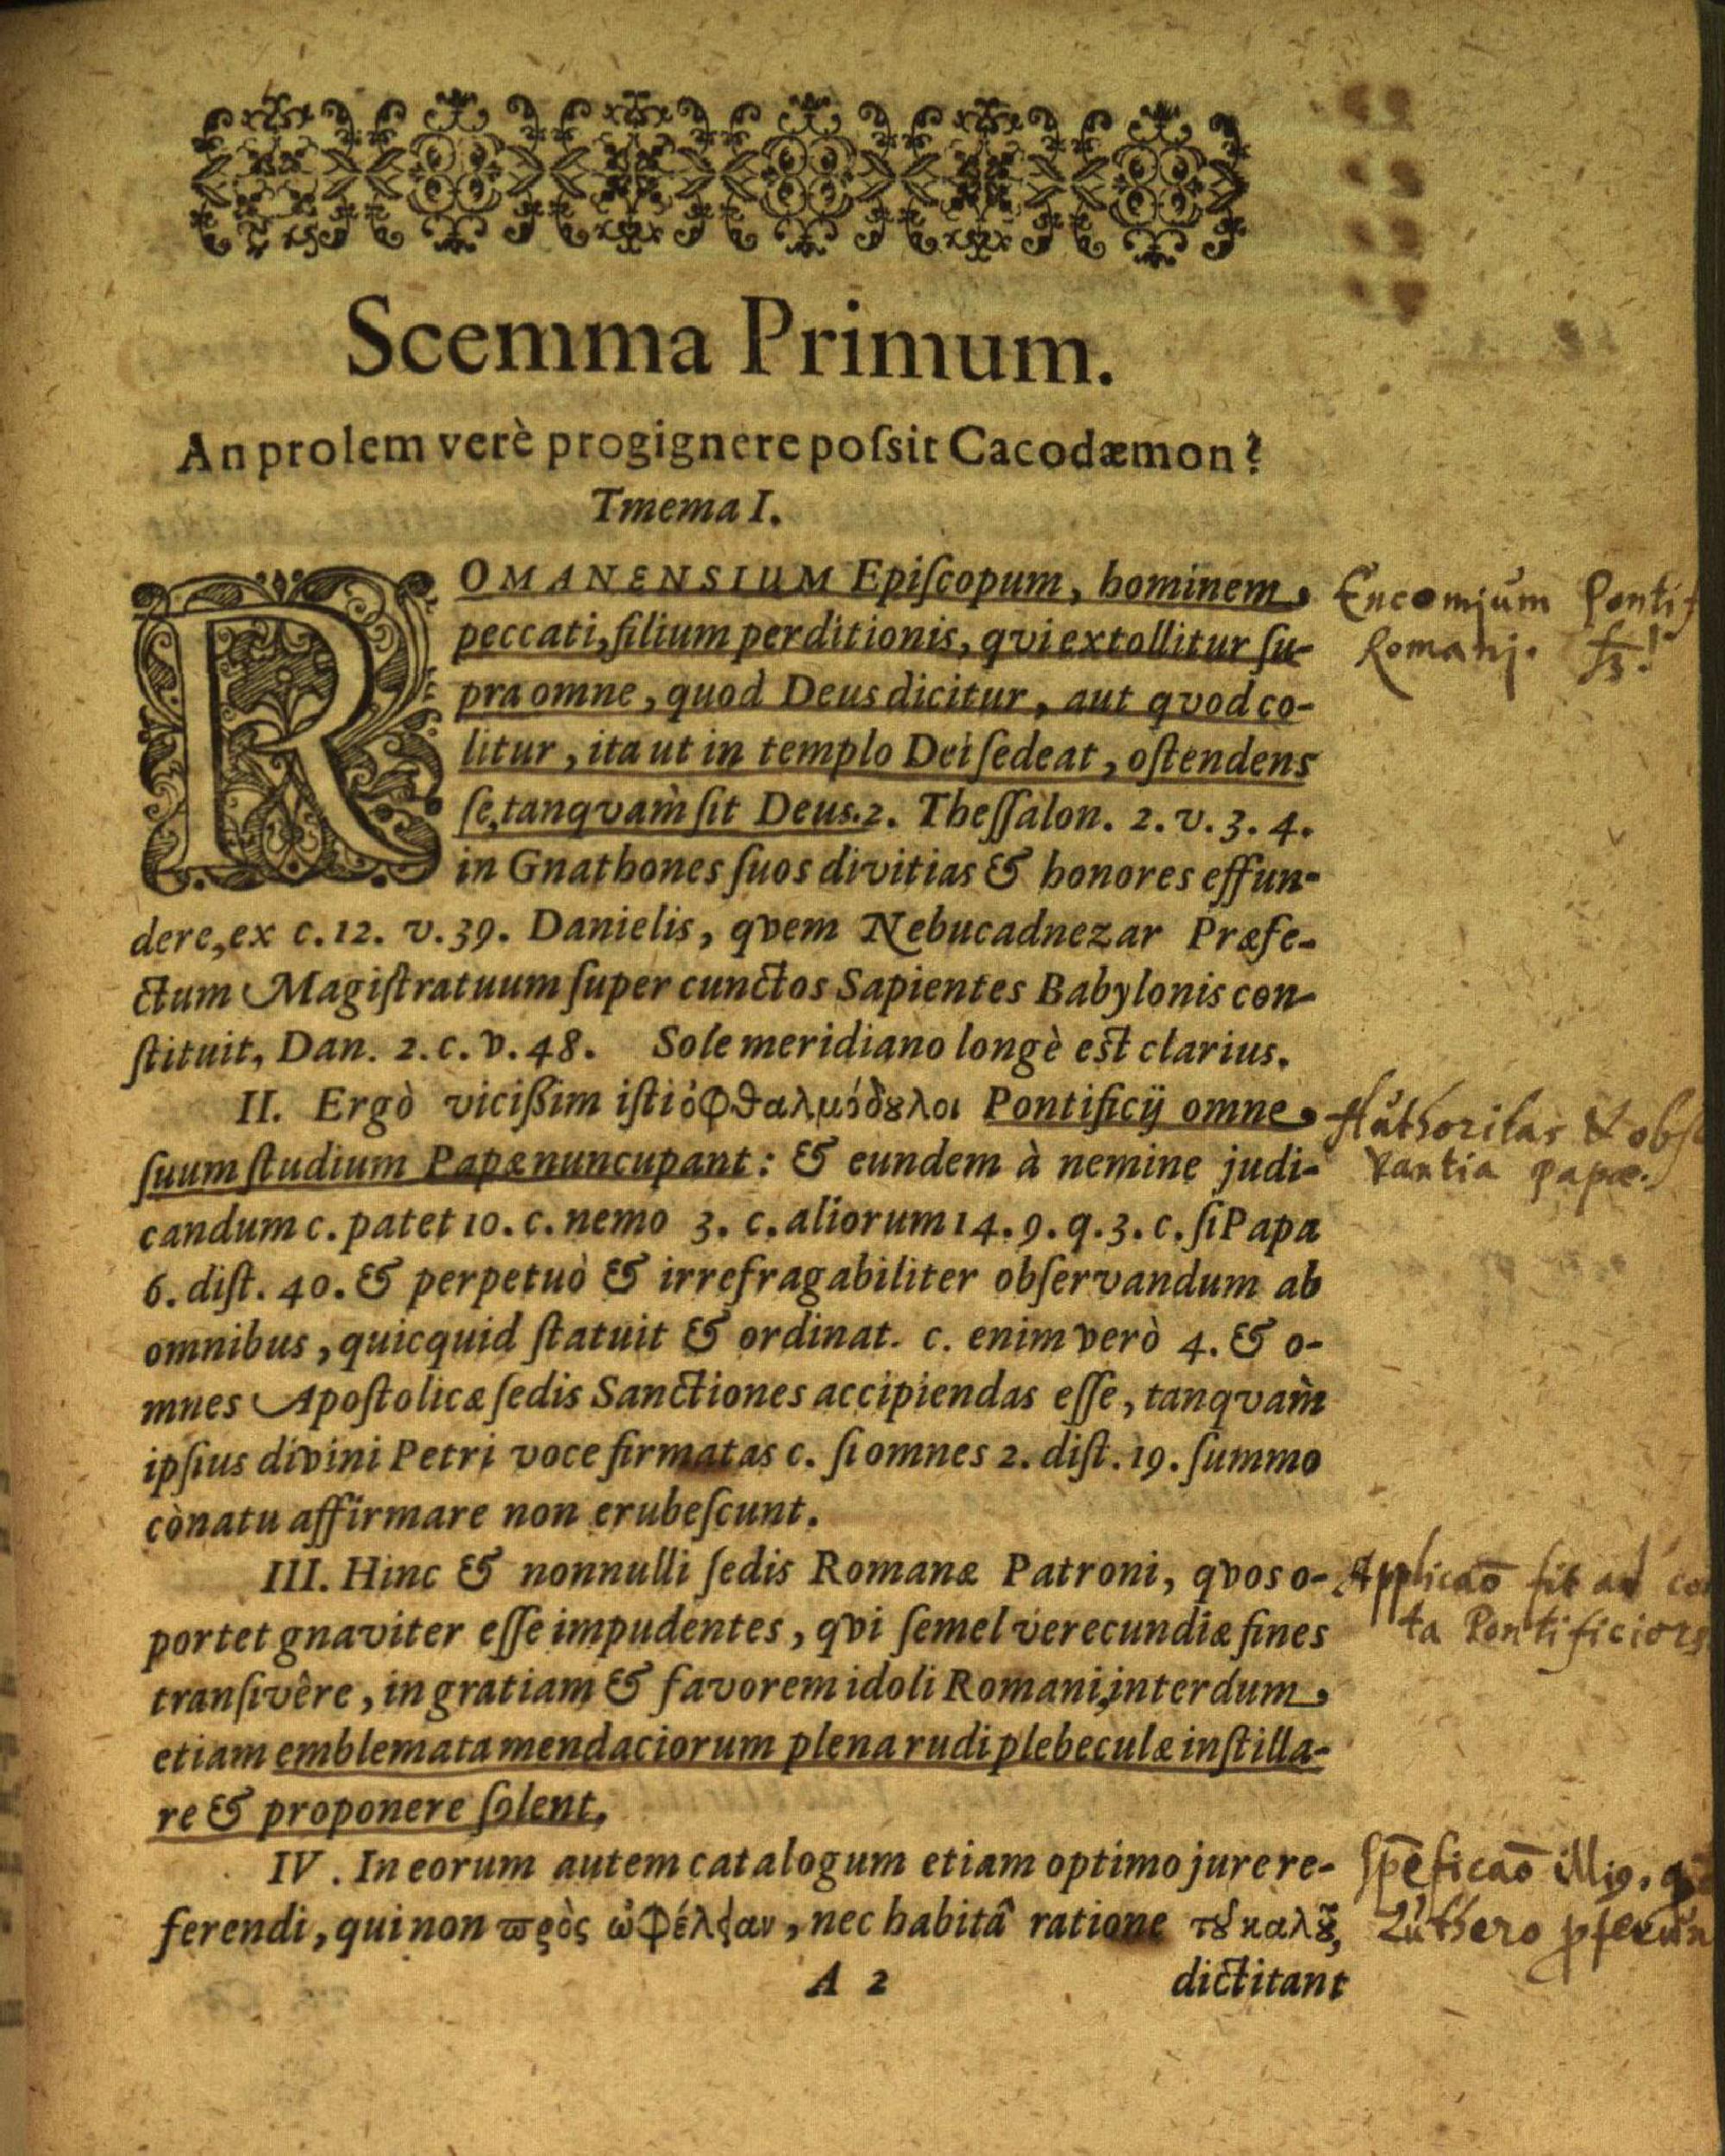 Scemma Primum.
An prolem verè progignere poſsit Cacodæmon?
Tmema I.
ROMANENSIUM Epiſcopum, hominem
peccati, filium perditionis, qvi extollitur ſu-
pra omne, quod Deus dicitur, aut qvod co-
litur, ita ut in templo Dei ſedeat, oſtendens
ſe, tanqvam̀ ſit Deus. 2. Theſſalon. 2. v. 3. 4.
in Gnathones ſuos divitias & honores effun-
dere, ex c. 12. v. 39. Danielis, qvem Nebucadnezar Præfe-
ctum Magiſtratuum ſuper cunctos Sapientes Babylonis con-
ſtituit, Dan. 2. c. v. 48. Sole meridiano longè eſt clarius.
II. Ergò viciſſim iſti ὀφθαλμόδȣλοι Pontificij omne
ſuum ſtudium Papæ nuncupant: & eundem à nemine judi-
candum c. patet 10. c. nemo 3. c. aliorum 14. 9. q. 3. c. ſi Papa
6. diſt. 40. & perpetuò & irrefragabiliter obſervandum ab
omnibus, quicquid ſtatuit & ordinat. c. enim verò 4. & o-
mnes Apoſtolicæ ſedis Sanctiones accipiendas eſſe, tanqvam̀
ipſius divini Petri voce firmatas c. ſi omnes 2. diſt. 19. ſummo
cònatu affirmare non erubeſcunt.
III. Hinc & nonnulli ſedis Romanæ Patroni, qvos o-
portet gnaviter eſſe impudentes, qvi ſemel verecundiæ fines
tranſivêre, in gratiam & favorem idoli Romani, interdum
etiam emblemata mendaciorum plena rudi plebeculæ inſtilla-
re & proponere ſolent,
IV. In eorum autem catalogum etiam optimo jure re-
ferendi, qui non πρὸς ὠφέλειαν, nec habitâ ratione τȣ̃ καλȣ̃,
A 2 dictitant
Encomium Pontif
Romanj.
Authoritas & obſ
vantia papæ.
Applicaō fit ad
ta Pontificior
Spēficaō illi9.
Luthero